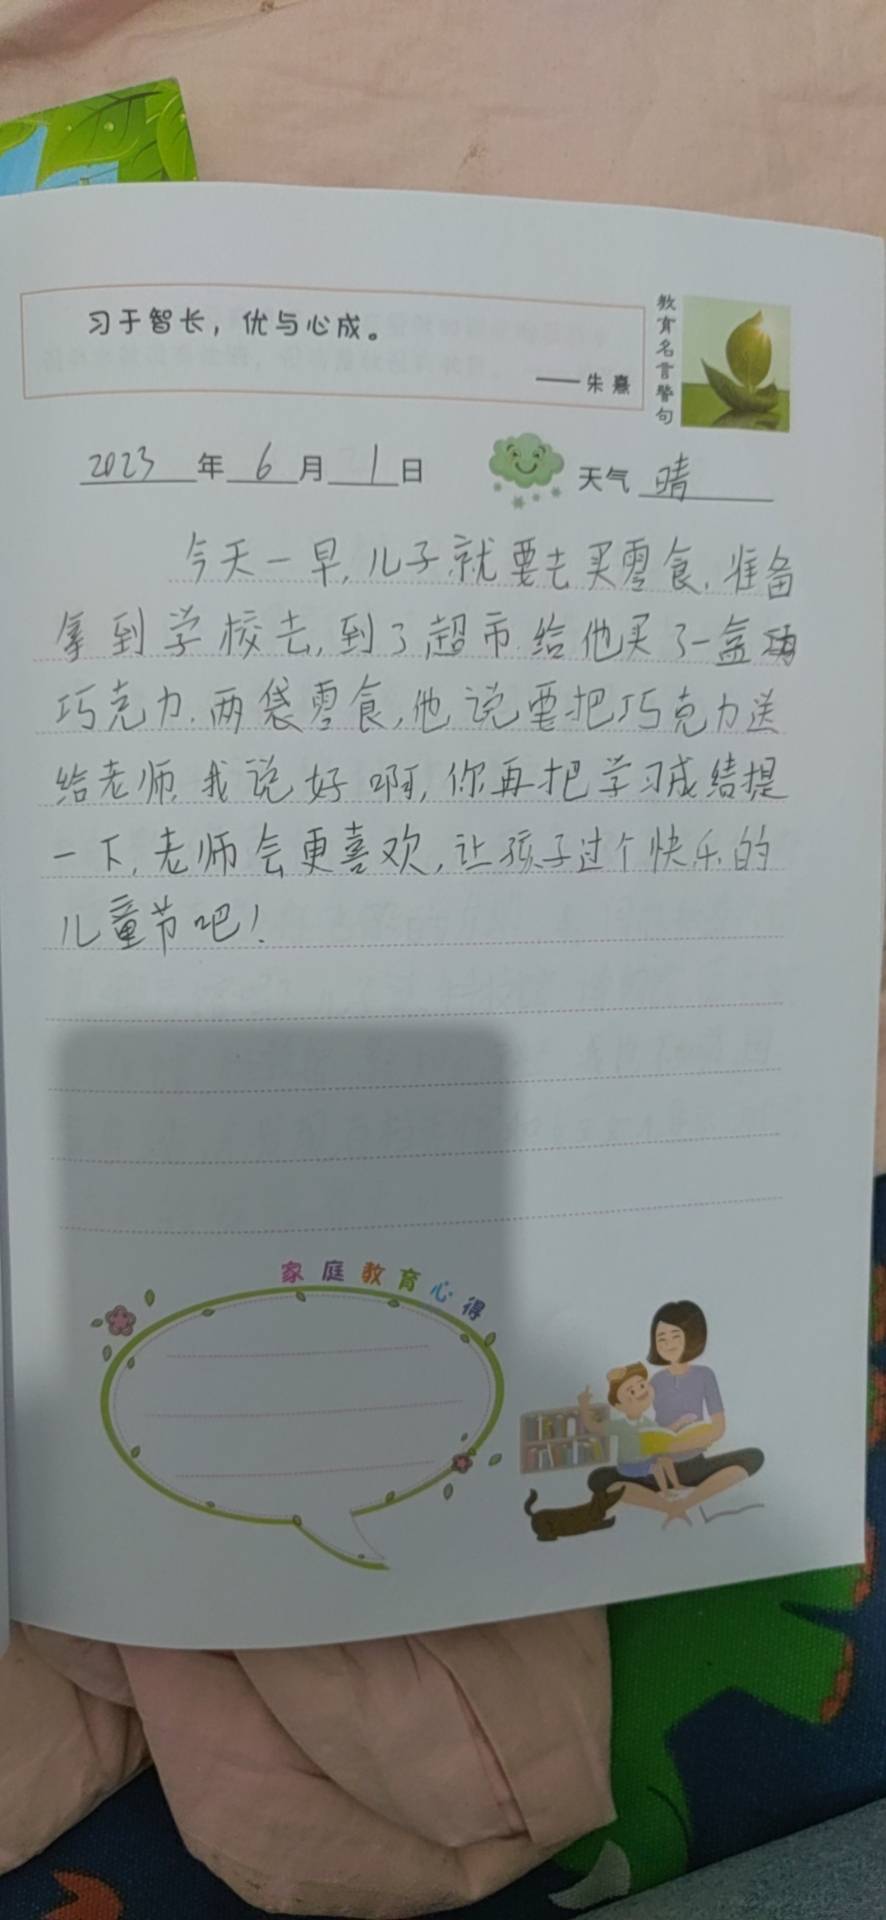 习于智长，优与心成。
——朱熹
教育名言警句
2023年6月1日 天气 晴
今天一早,儿子就要去买零食,准备
拿到学校去,到了超市给他买了一盒
巧克力.两袋零食,他说要把巧克力送
给老师,我说好啊,你再把学习成绩提
一下,老师会更喜欢,让孩子过个快乐的
儿童节吧!
家庭教育心得